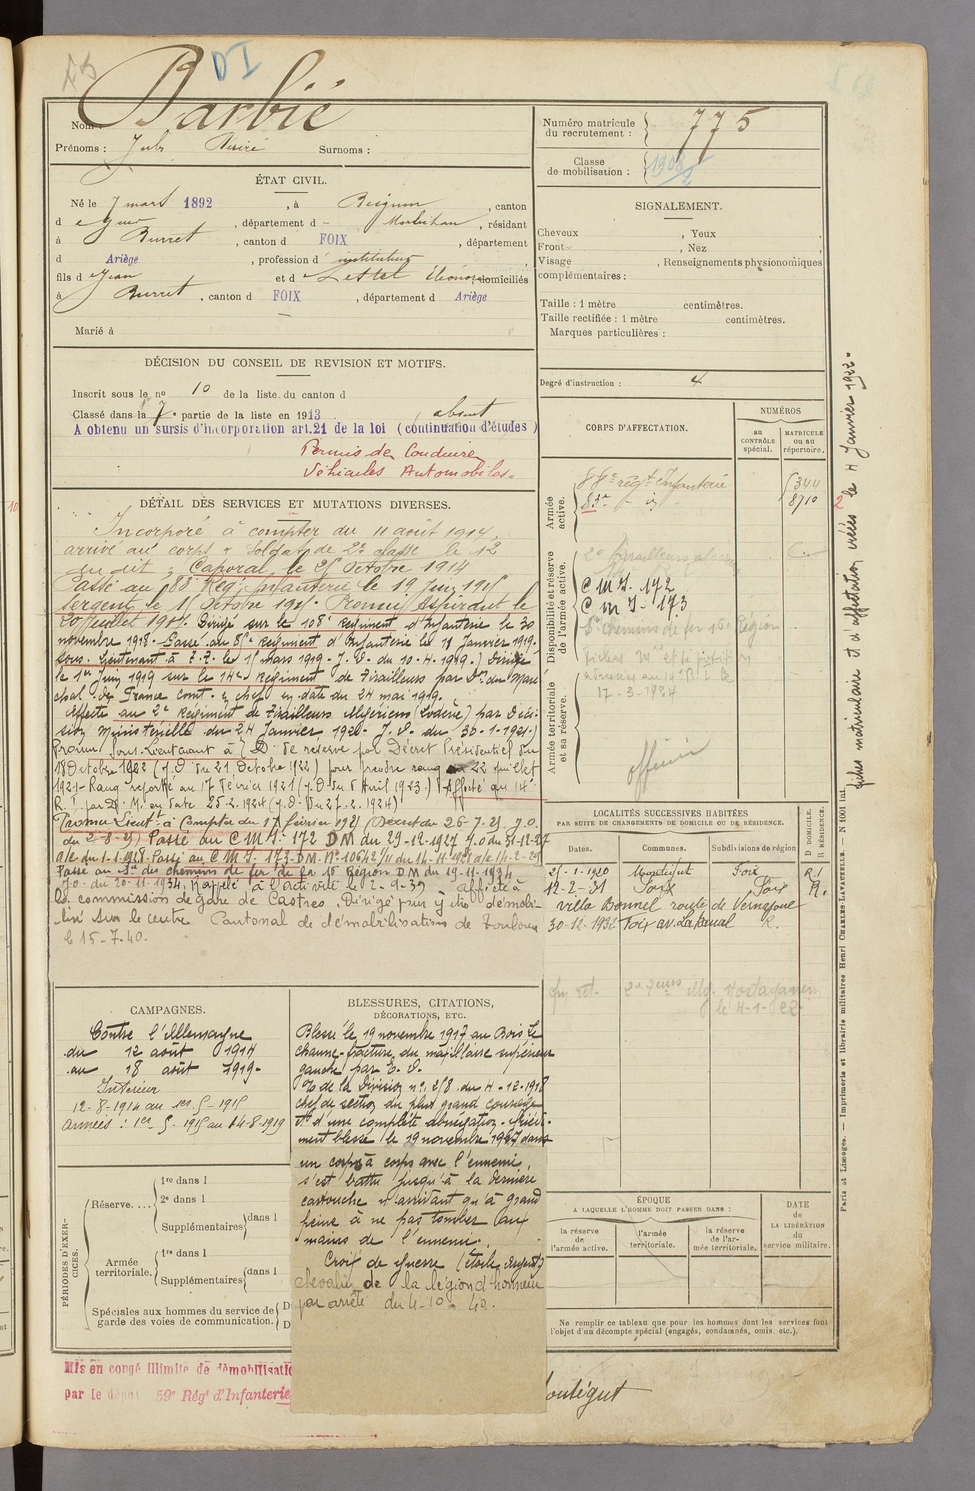 DI
Nom : Barbié
Prénoms : Jules Désiré Surnoms :
Numéro matricule du recrutement : 775
Classe de mobilisation : 1908
ÉTAT CIVIL.
Né le 7 mars 1892, à Beignon, canton
d e Guer, département d Morbihan, résidant
à Burret, canton d FOIX, département
d Ariège, profession d instituteur
fils d e Jean et d e domiciliés
à Burret, canton d FOIX, département d Ariège
Marié à
SIGNALEMENT.
Cheveux , Yeux
Front , Nez
Visage , Renseignements physionomiques
complémentaires :
Taille : 1 mètre centimètres.
Taille rectifiée : 1 mètre centimètres.
Marques particulières :
Degré d'instruction : 4
DÉCISION DU CONSEIL DE REVISION ET MOTIFS.
Inscrit sous le no 10 de la liste du canton d
Classé dans la 7e partie de la liste en 1913 absent
A obtenu un sursis d'incorporation art.21 de la loi (continuation d'études)
Permis de Conduire
Véhicules Automobiles.
DÉTAIL DES SERVICES ET MUTATIONS DIVERSES.
Incorporé à compter du 11 août 1914,
arrivé au corps & Soldat de 2e classe le 12
au dit ; Caporal le 25 Octobre 1914
Passé au 83e Rég. Infanterie le 19 Juin 1915
Sergent le 15 Octobre 1915. Promu Aspirant le
20 Juillet 1917. Dirigé sur le 108e Régiment d'Infanterie le 30
novembre 1918. Passé au 85e Régiment d'Infanterie le 19 Janvier 1919.
Sous-Lieutenant à T.T. le 15 mars 1919. J.O. du 10.4.1919.) Dirigé
le 1er Juin 1919 sur le 14e Régiment de Tirailleurs par Don du Maré
chal de France Comt en chef en date du 24 mai 1919.
Affecté au 2e Régiment de Tirailleurs Algériens (Lodève) par Déci-
sion Ministérielle du 24 Janvier 1920. J.O. du 30-1-1920)
Promu Sous-Lieutenant à T.D. de réserve par Décret Présidentiel du
18 Octobre 1922 (J.O. du 21 Octobre 1922) pour prendre rang du 22 juillet
1921. Rang reporté au 17 Février 1921 (J.O. du 5 Avril 1923.) Affecté au 14e
R.T. par D.M. en date 25.2.1924 (J.O. du 27.2.1924)
Promu Lieutt à Compter du 17 février 1925 (Décret du 26-7-25 J.O.
du 2-8-25) Passé au C M I. 172 DM du 29-12-1927 J.O du 31-12-27
a/c du 1-1-1928. Passé au C M I. 173
Passé au Sn des chemins de fer de la 16e Région D.M du 19-11-1934
J.O. du 20-11-1934. Rappelé à l'activité le 2-9-39 affecté à
la commission de gare de Castres. Dirigé pour y être démobi-
lisé sur le centre Cantonal de démobilisation de Toulouse
le 15-7-40.
CORPS D'AFFECTATION.
NUMÉROS
au CONTRÔLE spécial.
MATRICULE ou au répertoire.
Armée active.
88e régt Infanterie 5344
83e - id 8710
Disponibilité et réserve de l'armée active.
2e Tirailleurs
C M I. 172
C M I - 173
Sn chemins de fer 16e Région
17-3-1924
Armée territoriale et sa réserve.
officier
fiches matriculaire et d'affectation créées le 4 Janvier 1922.
LOCALITÉS SUCCESSIVES HABITÉES
PAR SUITE DE CHANGEMENTS DE DOMICILE OU DE RÉSIDENCE.
Dates. Communes. Subdivisions de région
D DOMICILE. R RÉSIDENCE.
25-1-1920 Montégut Foix R.
12-2-31 Foix Foix R.
villa Bonnel route de Vernajoul
30-12-1932 Foix av. Lakanal R.
le 4-1-22
CAMPAGNES.
Contre l'Allemagne
du 12 août 1914
au 18 août 1919.
Intérieur
12-8-1914 au 1er-5-1915
armées : 1er-5-1915 au 14-8-1919
BLESSURES, CITATIONS,
DÉCORATIONS, ETC.
Blessé le 19 novembre 1917 au Bois Le
Chaume-fracture du maxillaire supérieur
gauche par E.O.
O/ de la Division no 258 du 4-12-1917
chef de section du plus grand courage
et d'une complète abnégation. Griève-
ment blessé le 19 novembre 1917 dans
un corps à corps avec l'ennemi,
s'est battu jusqu'à la dernière
cartouche n'arrivant qu'à grand
peine à ne pas tomber aux
mains de l'ennemi.
Croix de guerre (étoile argent)
chevalier de la légion d'honneur
par arrêté du 4-10-40.
PÉRIODES D'EXERCICES.
Réserve.... 1re dans l
2e dans l
Supplémentaires dans l
Armée territoriale. 1re dans l
Supplémentaires dans l
Spéciales aux hommes du service de
garde des voies de communication.
ÉPOQUE
A LAQUELLE L'HOMME DOIT PASSER DANS :
la réserve de l'armée active.
l'armée territoriale.
la réserve de l'armée territoriale.
DATE de LA LIBÉRATION du service militaire.
Ne remplir ce tableau que pour les hommes dont les services font
l'objet d'un décompte spécial (engagés, condamnés, omis, etc.).
Mis en congé illimité de démobilisatio
par le dépôt 59e Régt d'Infanterie
ontégut
Paris et Limoges. — Imprimerie et librairie militaires Henri CHARLES-LAVAUZELLE